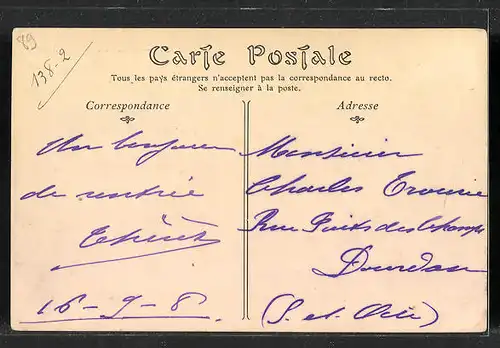 89
138-2
Carte Postale
Tous les pays étrangers n'acceptent pas la correspondance au recto.
Se renseigner à la poste.
Correspondance
Un bonjour
de rentrée
16-9-8
Adresse
Monsieur
Charles
Rue Puits des Champs
Dourdan
(S. et Oise)